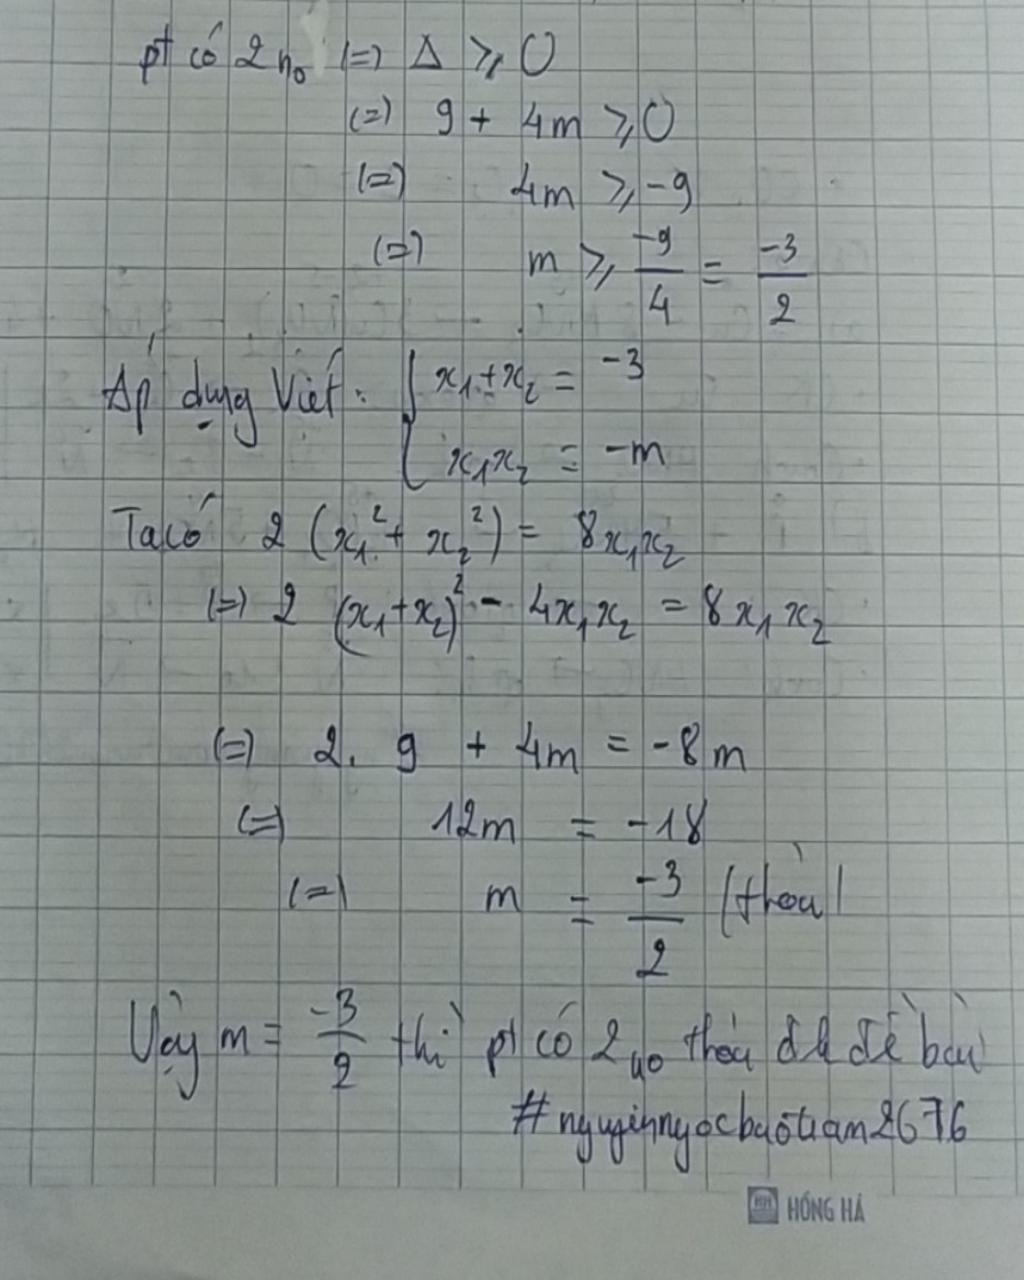 pt có 2 no (=) Δ ⩾ 0
(=) 9 + 4m ⩾ 0
(=) 4m ⩾ -9
(=) m ⩾ -9/4 = -3/2
Áp dụng Viét: { x₁ + x₂ = -3
x₁x₂ = -m
Ta có 2 (x₁² + x₂²) = 8x₁x₂
(=) 2 (x₁ + x₂)² - 4x₁x₂ = 8x₁x₂
(=) 2. 9 + 4m = -8m
(=) 12m = -18
(=) m = -3/2 (thỏa)
Vậy m = -3/2 thì pt có 2 no thỏa đk đề bài
#nguyenngocbaotram2676
HH HỒNG HÀ